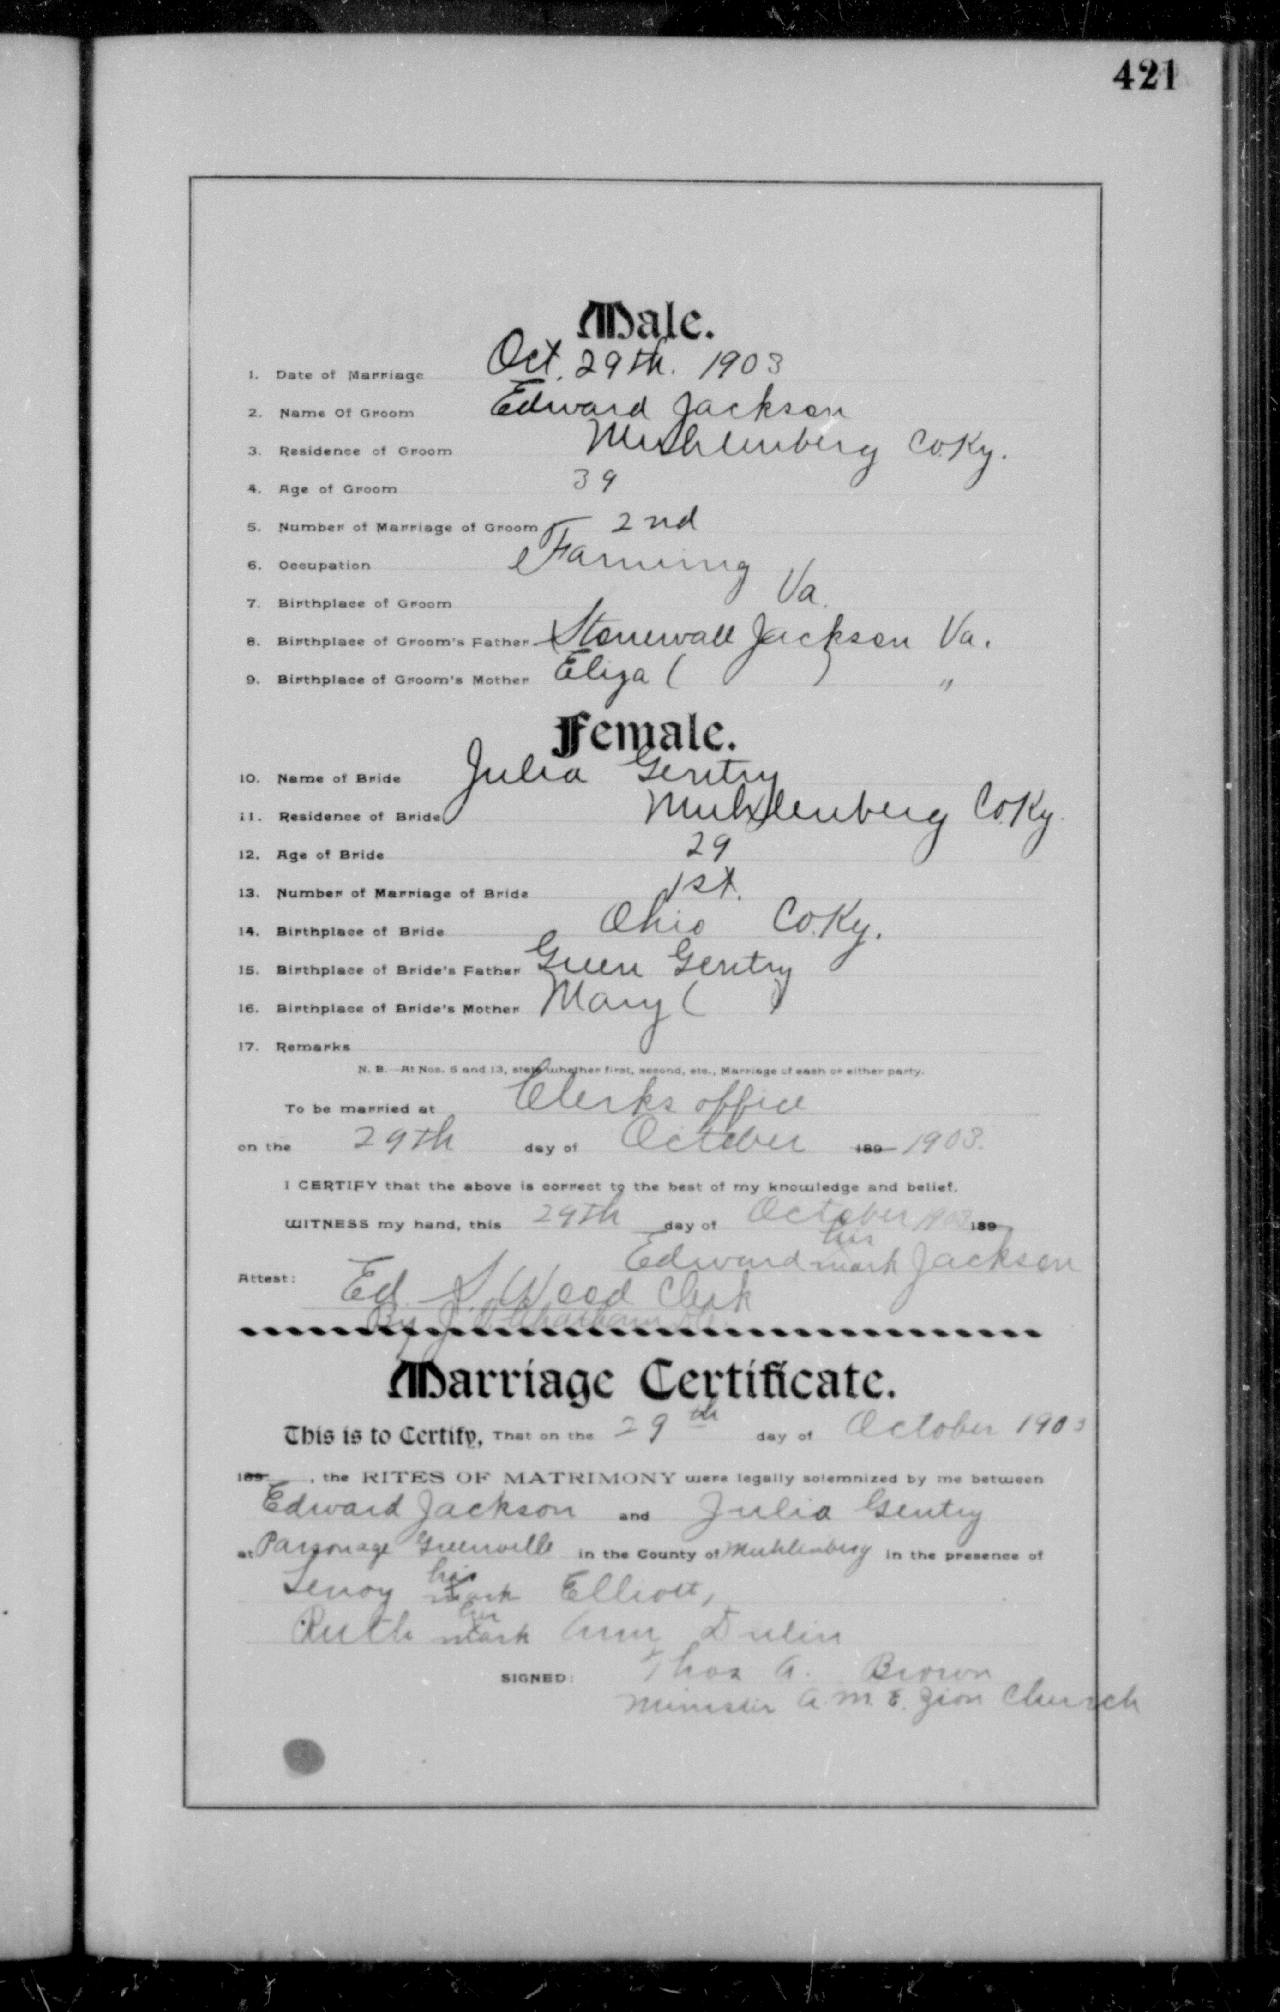 421
Male.
1. Date of Marriage Oct. 29th. 1903
2. Name Of Groom Edward Jackson
3. Residence of Groom Muhlenberg Co. Ky.
4. Age of Groom 39
5. Number of Marriage of Groom 2nd
6. Occupation Farming
7. Birthplace of Groom Va.
8. Birthplace of Groom's Father Stonewall Jackson Va.
9. Birthplace of Groom's Mother Eliza ( ) "
Female.
10. Name of Bride Julia Gentry
11. Residence of Bride Muhlenberg Co. Ky.
12. Age of Bride 29
13. Number of Marriage of Bride 1st.
14. Birthplace of Bride Ohio Co. Ky.
15. Birthplace of Bride's Father Green Gentry
16. Birthplace of Bride's Mother Mary ( )
17. Remarks
N. B.—At Nos. 5 and 13, state whether first, second, etc., Marriage of each or either party.
To be married at Clerks office
on the 29th day of October 189 1903.
I CERTIFY that the above is correct to the best of my knowledge and belief.
WITNESS my hand, this 29th day of October 1903 189
his
Edward mark Jackson
Attest: Ed. S. Wood Clerk
By J.
Marriage Certificate.
This is to Certify, That on the 29th day of October 1903
189 , the RITES OF MATRIMONY were legally solemnized by me between
Edward Jackson and Julia Gentry
at Parsonage Greenville in the County of Muhlenberg in the presence of
his
Leroy mark Elliott,
her
Ruth mark Ann Dulin
SIGNED: Thos A. Brown
Minister A. M. E. Zion Church